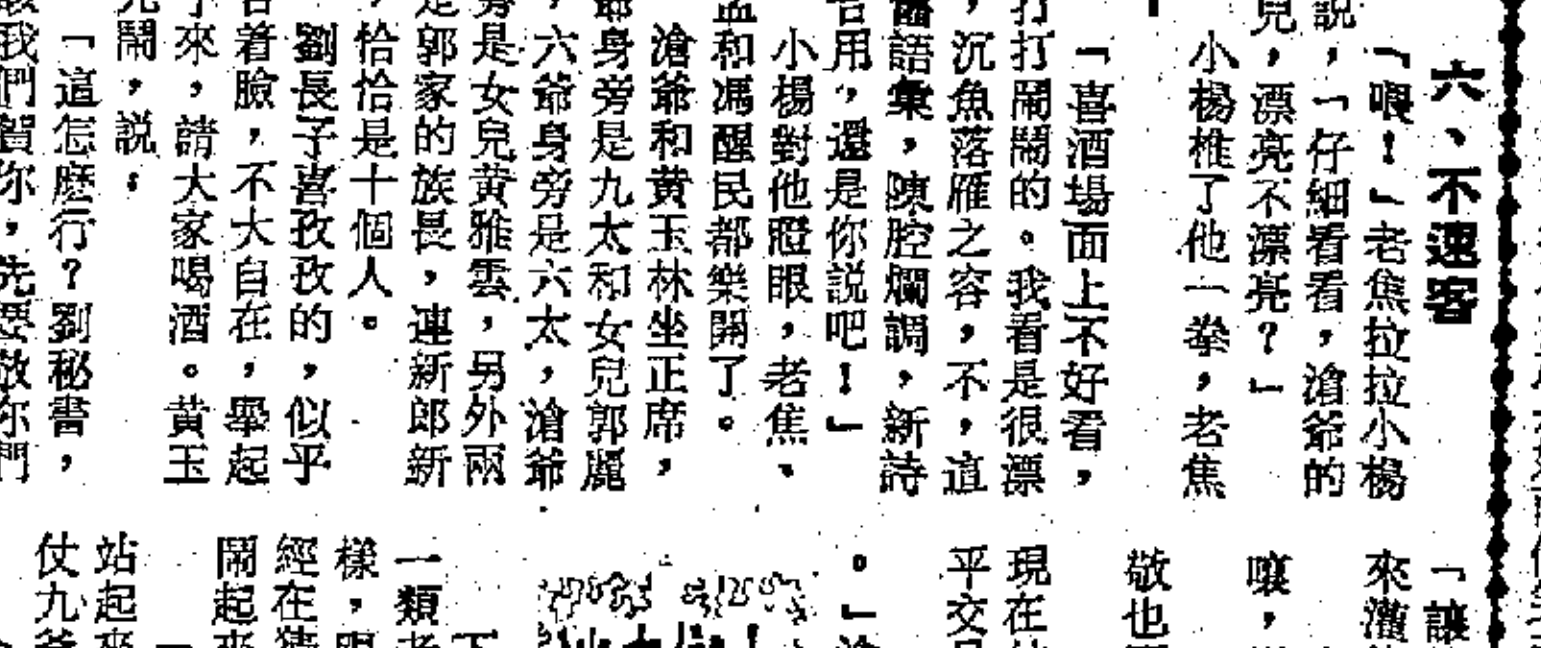 六、不速客
「喂!」老焦拉拉小楊
說,「仔細看看,滄爺的
兒,漂亮不漂亮?」
小楊椎了他一拳,老焦
「喜酒場面上不好看,
打打鬧鬧的。我看是很漂
,沉魚落雁之容,不,這
舊語彙,陳腔爛調,新詩
合用,還是你說吧!」
小楊對他瞪眼,老焦、
孟和馮醒民都樂開了。
滄爺和黃玉林坐正席,
爺身旁是九太和女兒郭麗
,六爺身旁是六太,滄爺
旁是女兒黃雅雲,另外兩
是郭家的族長,連新郎新
,恰恰是十個人。
劉長子喜孜孜的,似乎
着臉,不大自在,舉起
來,請大家喝酒。黃玉
鬧,說:
「這怎麼行?劉秘書,
我們賀你,先要敬你們
「讓
來灌
嚷,
敬也
現在
平交
。」
一類
樣,眼
經在猜
鬧起來
站起來
仗九爺